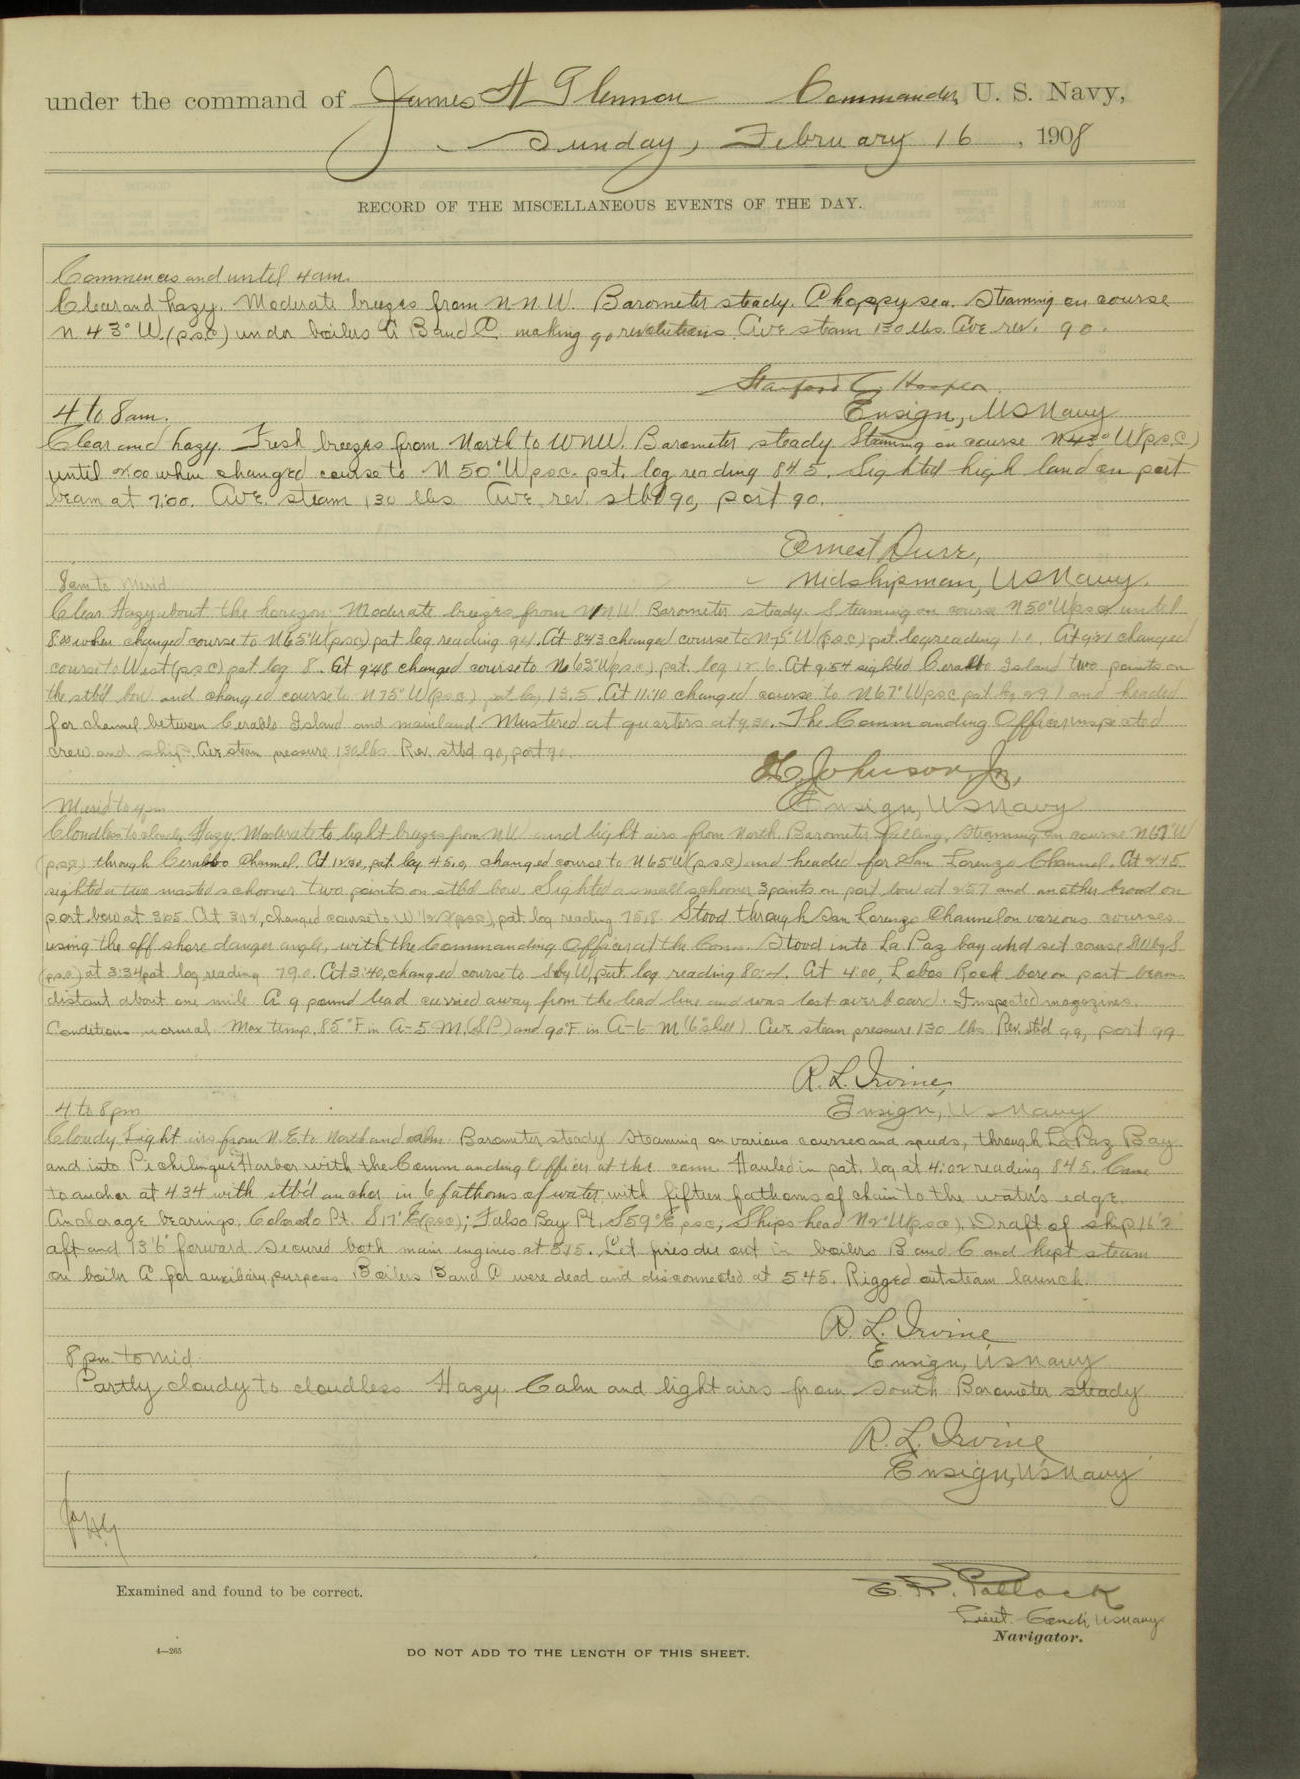 under the command of James H Glennon Commander, U. S. Navy,
Sunday, February 16, 1908
RECORD OF THE MISCELLANEOUS EVENTS OF THE DAY.
Commences and until 4 am.
Clear and hazy. Moderate breezes from N N W. Barometer steady. Choppy sea. Steaming on course
N 43° W. (p.s.c) under boilers A B and C making 90 revolutions. Ave steam 130 lbs. Ave rev. 90.
Stanford C. Hooper
Ensign, US Navy
4 to 8 am.
Clear and hazy. Fresh breezes from North to WNW. Barometer steady Steaming on course N43° W(p.s.c)
until when changed course to N 50° W psc. pat. log reading 84.5. Sighted high land on port
beam at 7:00. Ave. steam 130 lbs Ave. rev. stbd 90, port 90.
Ernest Durr,
Midshipman, US Navy.
8 am to Merid
Clear. Hazy about the horizon. Moderate breezes from NNW. Barometer steady. Steaming on course N50°W psc until
8:00 when changed course to N65°W(psc) pat log reading 94. At 843 changed course to N75°W(p.s.c) pat. log reading 1.1. At 921 changed
course to West (p.s.c) pat log 8. At 948 changed course to N 63°W(p.s.c) pat. log 12.6. At 9:54 sighted Ceralbo Island two points on
the stb'd bow and changed course to N 75° W(psc) pat log 13.5. At 11:10 changed course to N67° W psc pat log 29.1 and headed
for channel between Ceralbo Island and mainland. Mustered at quarters at 9.30. The Commanding Officer inspected
crew and ship. Ave steam pressure 130 lbs Rev. stbd 90, port 90.
Johnson, Jr,
Ensign, US Navy
Merid to 4 pm
Cloudless to cloudy Hazy. Moderate to light breezes from NW and light airs from North. Barometer falling. Steaming on course N67°W
(p.s.c) through Ceralbo Channel. At 12:30, pat. log 45.0, changed course to N 65°W(p.s.c) and headed for San Lorenzo Channel. At 2:45
sighted a two masted schooner two points on stbd bow. Sighted a small schooner 3 points on port bow at 2:57 and another broad on
port bow at 3:05. At 3:12, changed course to W 1/2 (psc), pat. log reading 75.8. Stood through San Lorenzo Channel on various courses
using the off shore danger angle, with the Commanding Officer at the Conn. Stood into La Paz bay and set course SW by S
(psc) at 3:34 pat. log reading 79.0. At 3:40, changed course to S by W, pat. log reading 80.1. At 4:00, Lobos Rock bore on port beam
distant about one mile. A 9 pound lead carried away from the lead line and was lost overboard. Inspected magazines.
Conditions normal Max temp. 85°F in A-5-M (SP) and 90°F in A-6-M (6" shell) Ave steam pressure 130 lbs Rev. stb'd 99, port 99
R. L. Irvine,
Ensign, US Navy
4 to 8 pm
Cloudy Light airs from N. E. to North and calm Barometer steady Steaming on various courses and speeds, through La Paz Bay
and into Pichilinque Harbor with the Commanding Officer at the conn. Hauled in pat. log at 4:02 reading 84.5. Came
to anchor at 4 34 with stb'd anchor in 6 fathoms of water with fifteen fathoms of chain to the water's edge.
Anchorage bearings, Colorado Pt. S 17° E(psc); Falso Bay Pt. S 59° E psc, Ships head N 2° W(psc), Draft of ship 16' 2"
aft and 13' 6" forward Secured both main engines at 5:15. Let fires die out in boilers B and C and kept steam
on boiler A for auxiliary purposes Boilers B and C were dead and disconnected at 5 45. Rigged out steam launch.
R. L. Irvine
Ensign, US Navy
8 pm to Mid
Partly cloudy to cloudless Hazy. Calm and light airs from South Barometer steady
R. L. Irvine
Ensign, US Navy
JHG
Examined and found to be correct.
E. R. Pollock
Lieut. Comdr, US Navy
Navigator.
4—265
DO NOT ADD TO THE LENGTH OF THIS SHEET.